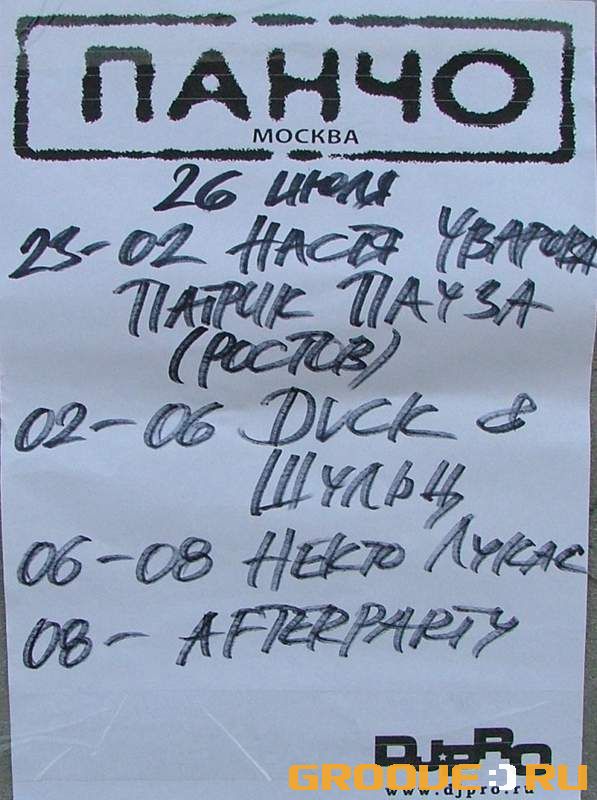 ПАНЧО
МОСКВА
26 июля
23-02 НАСТЯ УВАРОВА
ПАТРИК ПАУЗА
(РОСТОВ)
02-06 DUCK &
ШУЛЬЦ
06-08 НЕКТО ЛУКАС
08- AFTERPARTY
DJ*PRO
GROOVE:).RU
www.djpro.ru